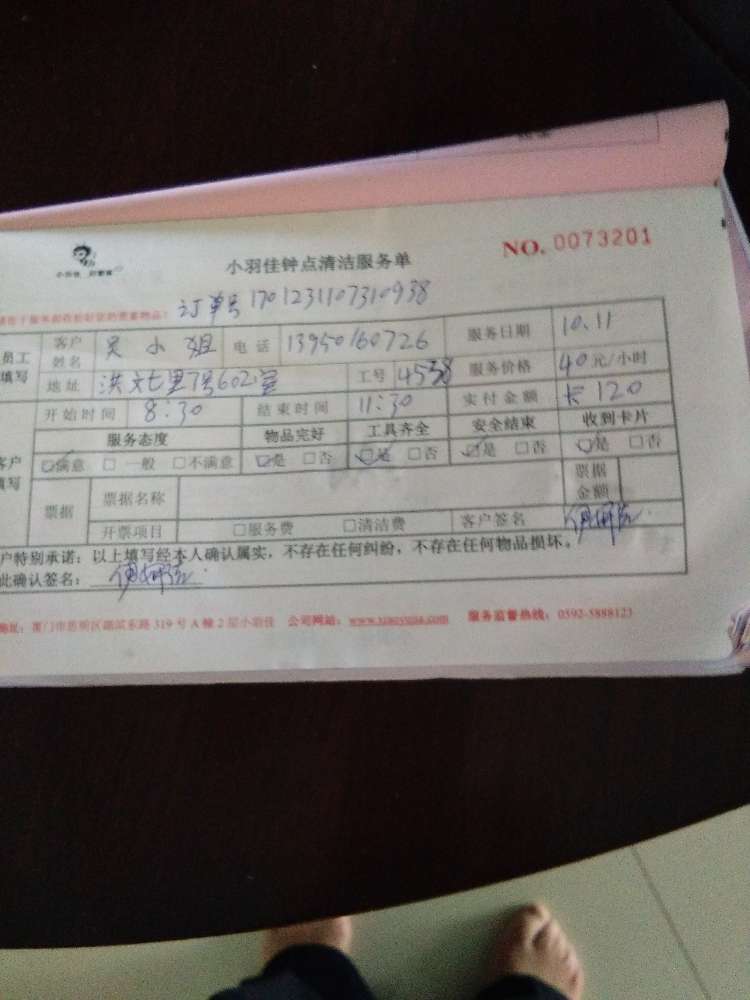 小羽佳钟点清洁服务单 NO. 0073201
小羽佳 好管家
订单号 1701231107310938
员工填写 客户姓名 吴小姐 电话 13950160726 服务日期 10.11
地址 洪文七里7号602室 工号 4538 服务价格 40元/小时
开始时间 8:30 结束时间 11:30 实付金额 卡120
客户填写 服务态度 物品完好 工具齐全 安全结束 收到卡片
☑满意 □一般 □不满意 ☑是 □否 ☑是 □否 ☑是 □否 ☑是 □否
票据 票据名称 票据金额
开票项目 □服务费 □清洁费 客户签名
户特别承诺：以上填写经本人确认属实，不存在任何纠纷，不存在任何物品损坏。
此确认签名：
地址：厦门市思明区湖滨东路319号A幢2层小羽佳 公司网站： 服务监督热线：0592-5888123